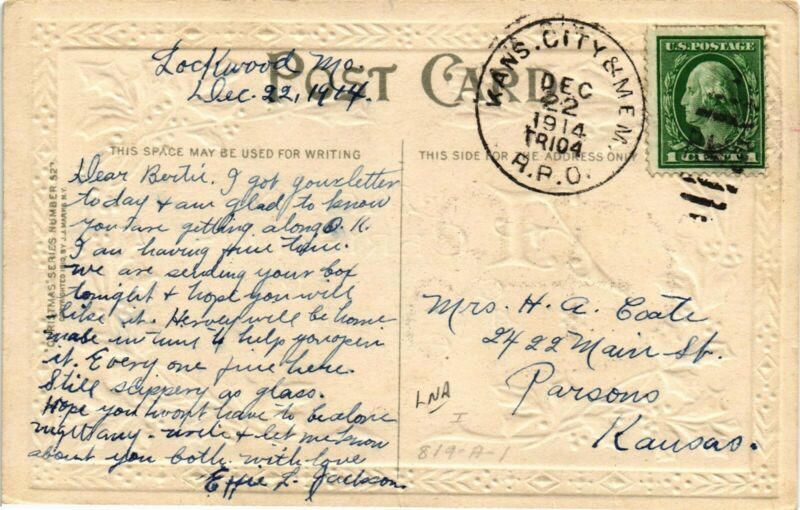 Lockwood Mo.
Dec. 22, 1914.
POST CARD
THIS SPACE MAY BE USED FOR WRITING
THIS SIDE FOR THE ADDRESS ONLY
KANS. CITY & MEM.
DEC
22
1914
TR104
R.P.O.
U.S. POSTAGE
1 CENT 1
CHRISTMAS SERIES NUMBER 527
COPYRIGHTED 1910, BY J.J. MARKS N.Y.
Dear Bertie. I got your letter
today & am glad to know
you are getting along O.K.
I am having fine time.
we are sending your box
tonight & hope you will
like it. Hervey will be home
in time to help you open
it. Every one fine here.
Still slippery as glass.
Hope you wont have to be alone
night any. write & let me know
about you both. with love
Effie L. Jackson
Mrs. H. A. Coate
2422 Main St.
Parsons
Kansas.
LNA
I
819-A-1